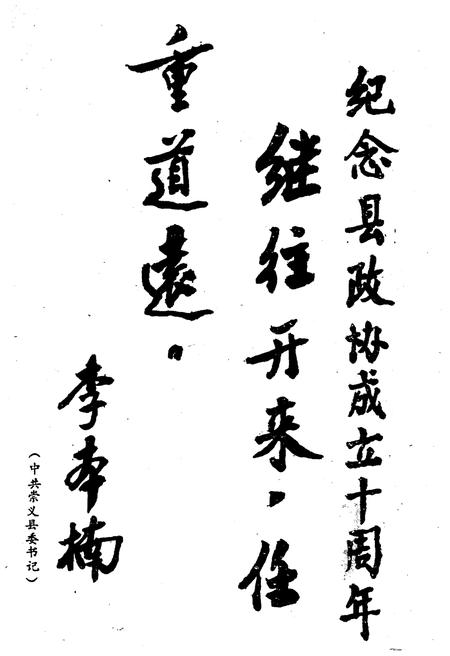 纪念县政协成立十周年
继往开来，任
重道遠。
李本楠
（中共崇义县委书记）